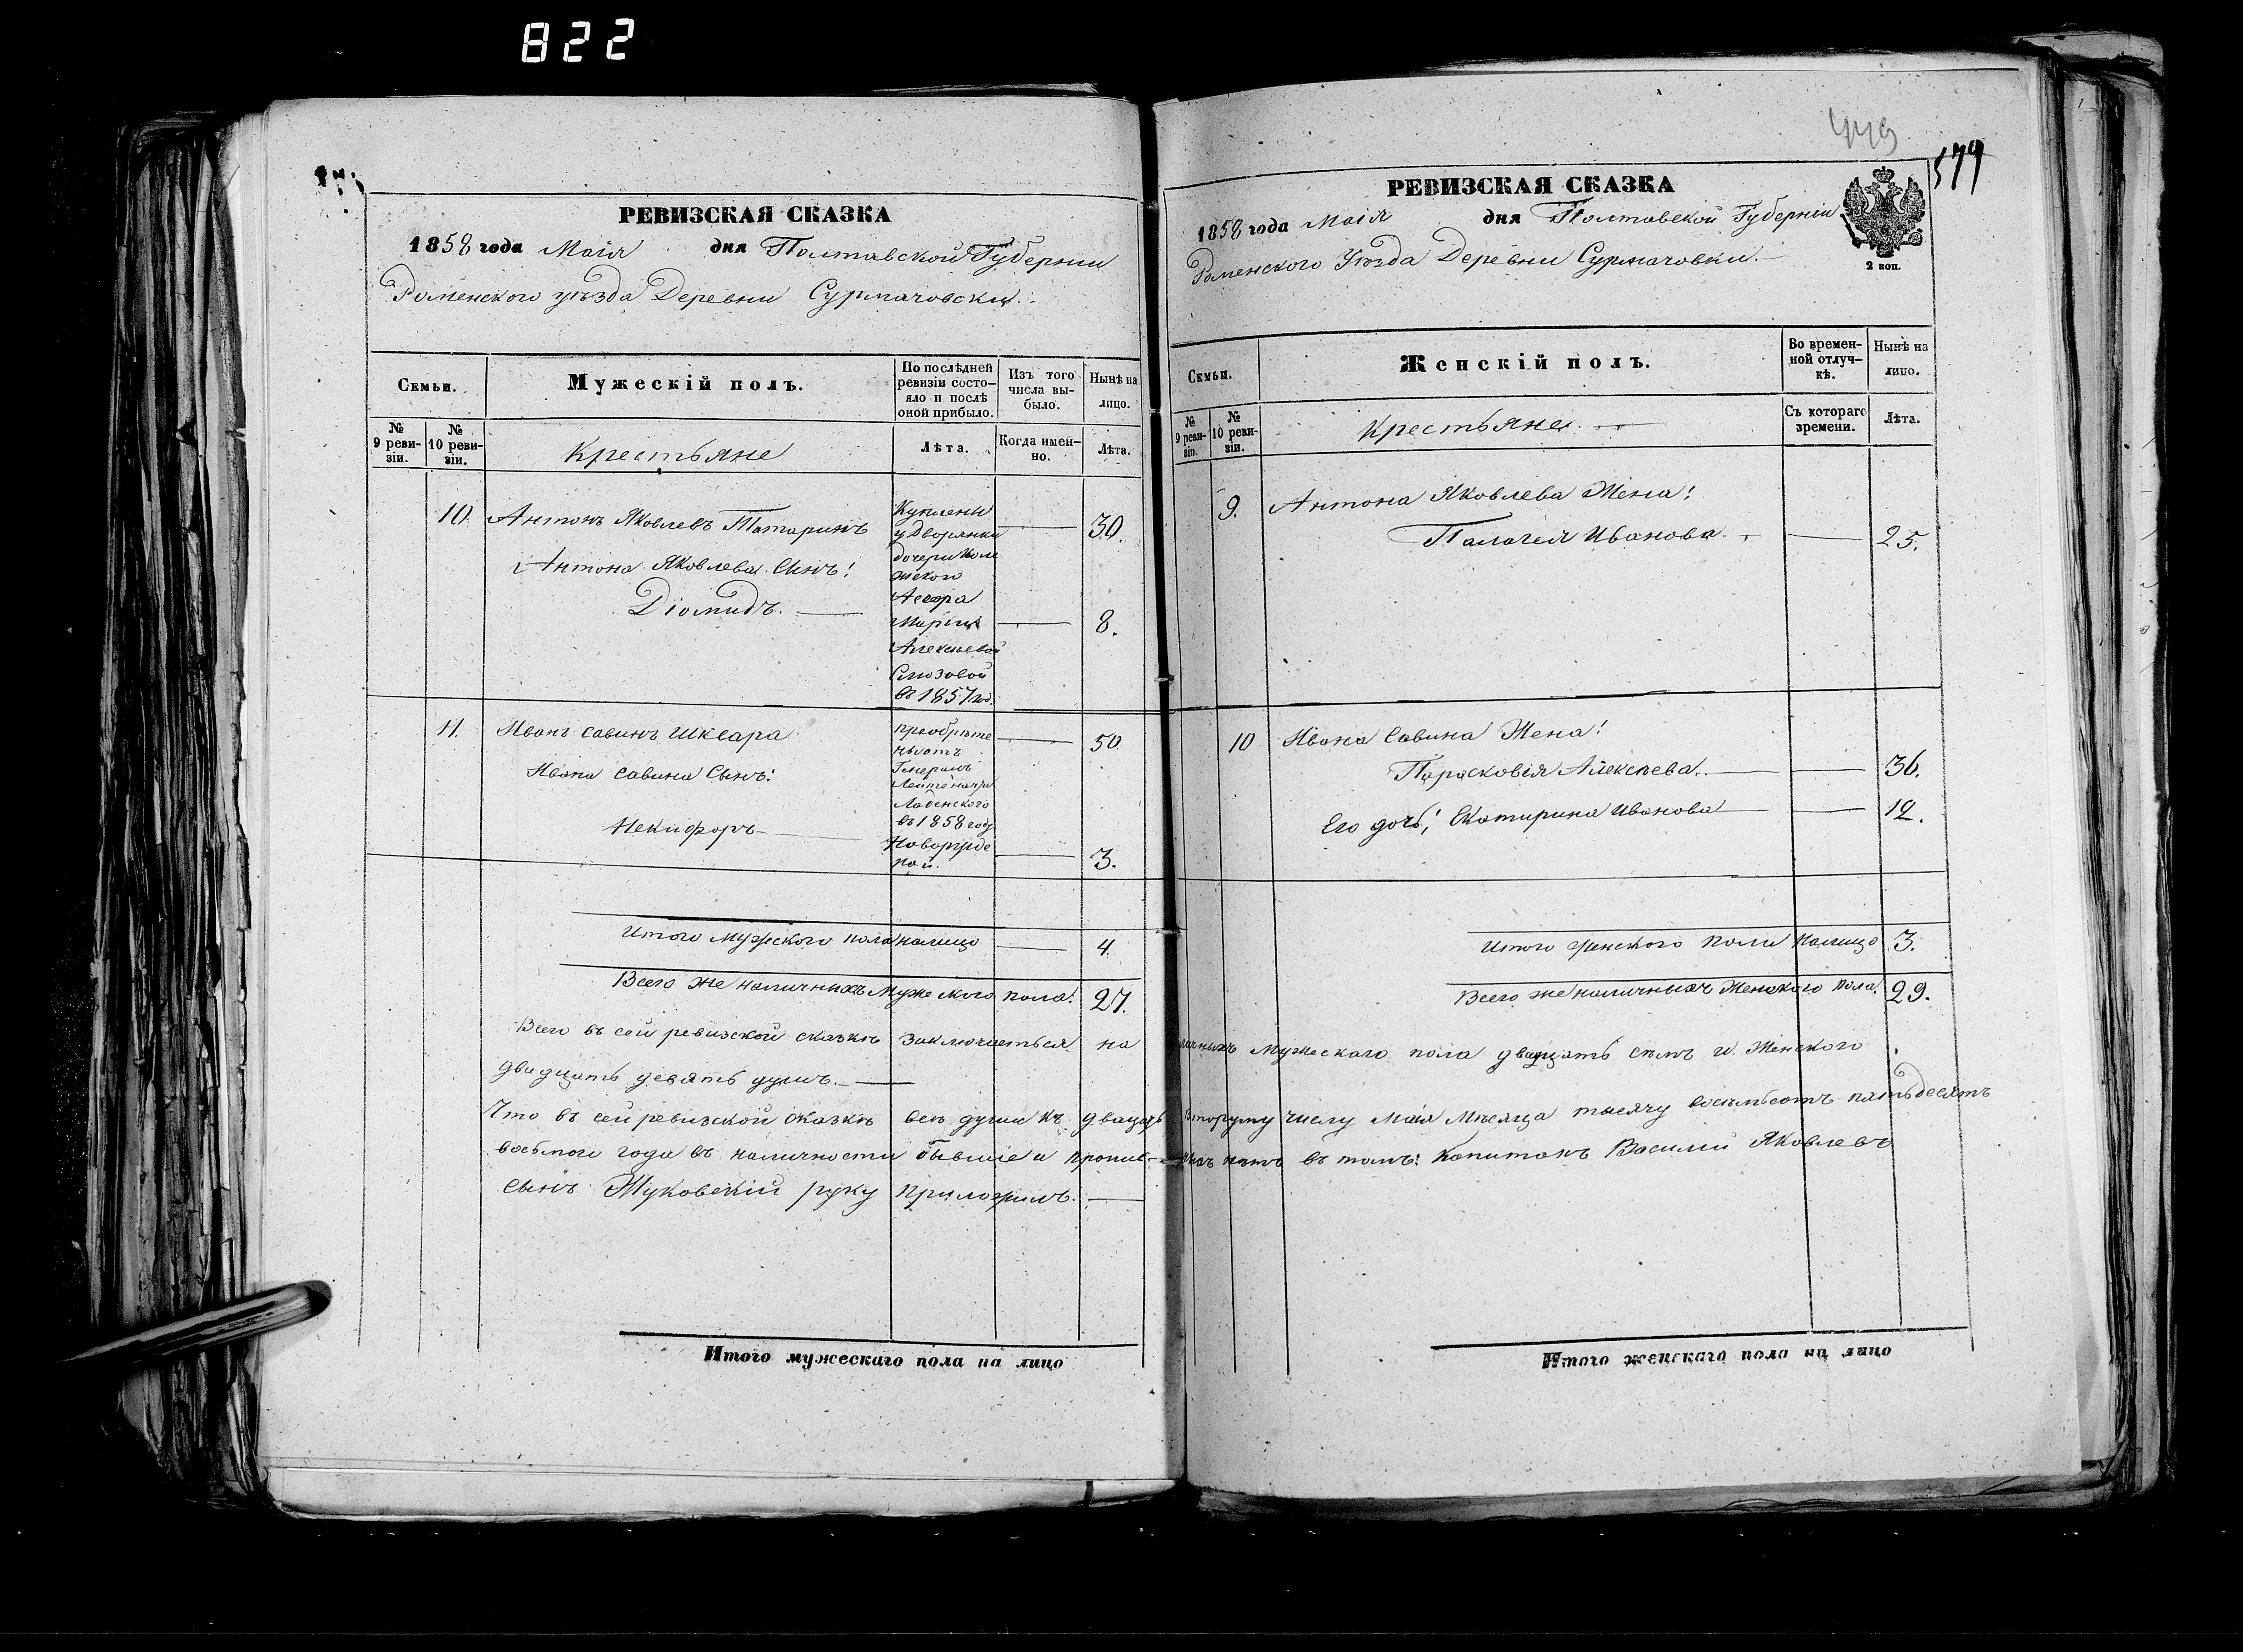 822
РЕВИЗСКАЯ СКАЗКА
1858 года Маія дня Полтавской Губерніи
Роменского уѣзда Деревни Сурмачовски.
Семьи.
Мужескій полъ.
По послѣдней ревизіи состо-яло и послѣ оной прибыло.
Изъ того числа вы-было.
Нынѣ на лицо.
№ 9 реви-зіи.
№ 10 реви-зіи.
Крестьяне
Лѣта.
Когда имен-но.
Лѣта.
10. Антонъ Яковлевъ Татаринъ
30.
Антона Яковлева Сынъ!
Діомидъ.
8.
Куплены
у Дворянки
дочери Коле
жскаго
Марьи
Алексѣевой
Слюзовой
въ 1857 год.
11. Иванъ Савинъ Шквара
50
Ивана Савина Сынъ:
Некифоръ
3.
пріобрѣте
ны отъ
Генералъ
въ 1858 году
Новорожде
ной.
Итого мужеского пола налицо 4.
Всего же наличнихъ мужеского пола: 27.
Всего въ сей ревизской сказкѣ заключаеться на
двадцать девять душъ.
Что въ сей ревизской сказкѣ всѣ души къ двадцать
восьмого года въ наличности бывшіе и
сынъ Жуковскій руку приложилъ.
Итого мужескаго пола на лицо
449
579
РЕВИЗСКАЯ СКАЗКА
1858 года Маія дня Полтавской Губерніи
Роменского Уѣзда Деревни Сурмачовки.
2 коп.
Семьи.
Женскій полъ.
Во времен-ной отлуч-кѣ.
Нынѣ на лицо.
№ 9 реви-зіи.
№ 10 реви-зіи.
Крестьяне
Съ котораго времени.
Лѣта.
9. Антона Яковлева Жена!
Палагея Иванова. 25.
10 Ивана Савина Жена!
Парасковія Алексѣева. 36.
Его дочь! Екатирина Иванова 12.
Итого женского пола налицо 3.
Всего же наличнихъ Женского пола. 29.
личныхъ Мужескаго пола двадцать сѣмъ и Женского
второму числу Маія Мѣсяца тысячу восѣмьсотъ пятьдесятъ
нѣтъ въ томъ: Капитанъ Василій Яковлевъ
Итого женскаго пола на лицо